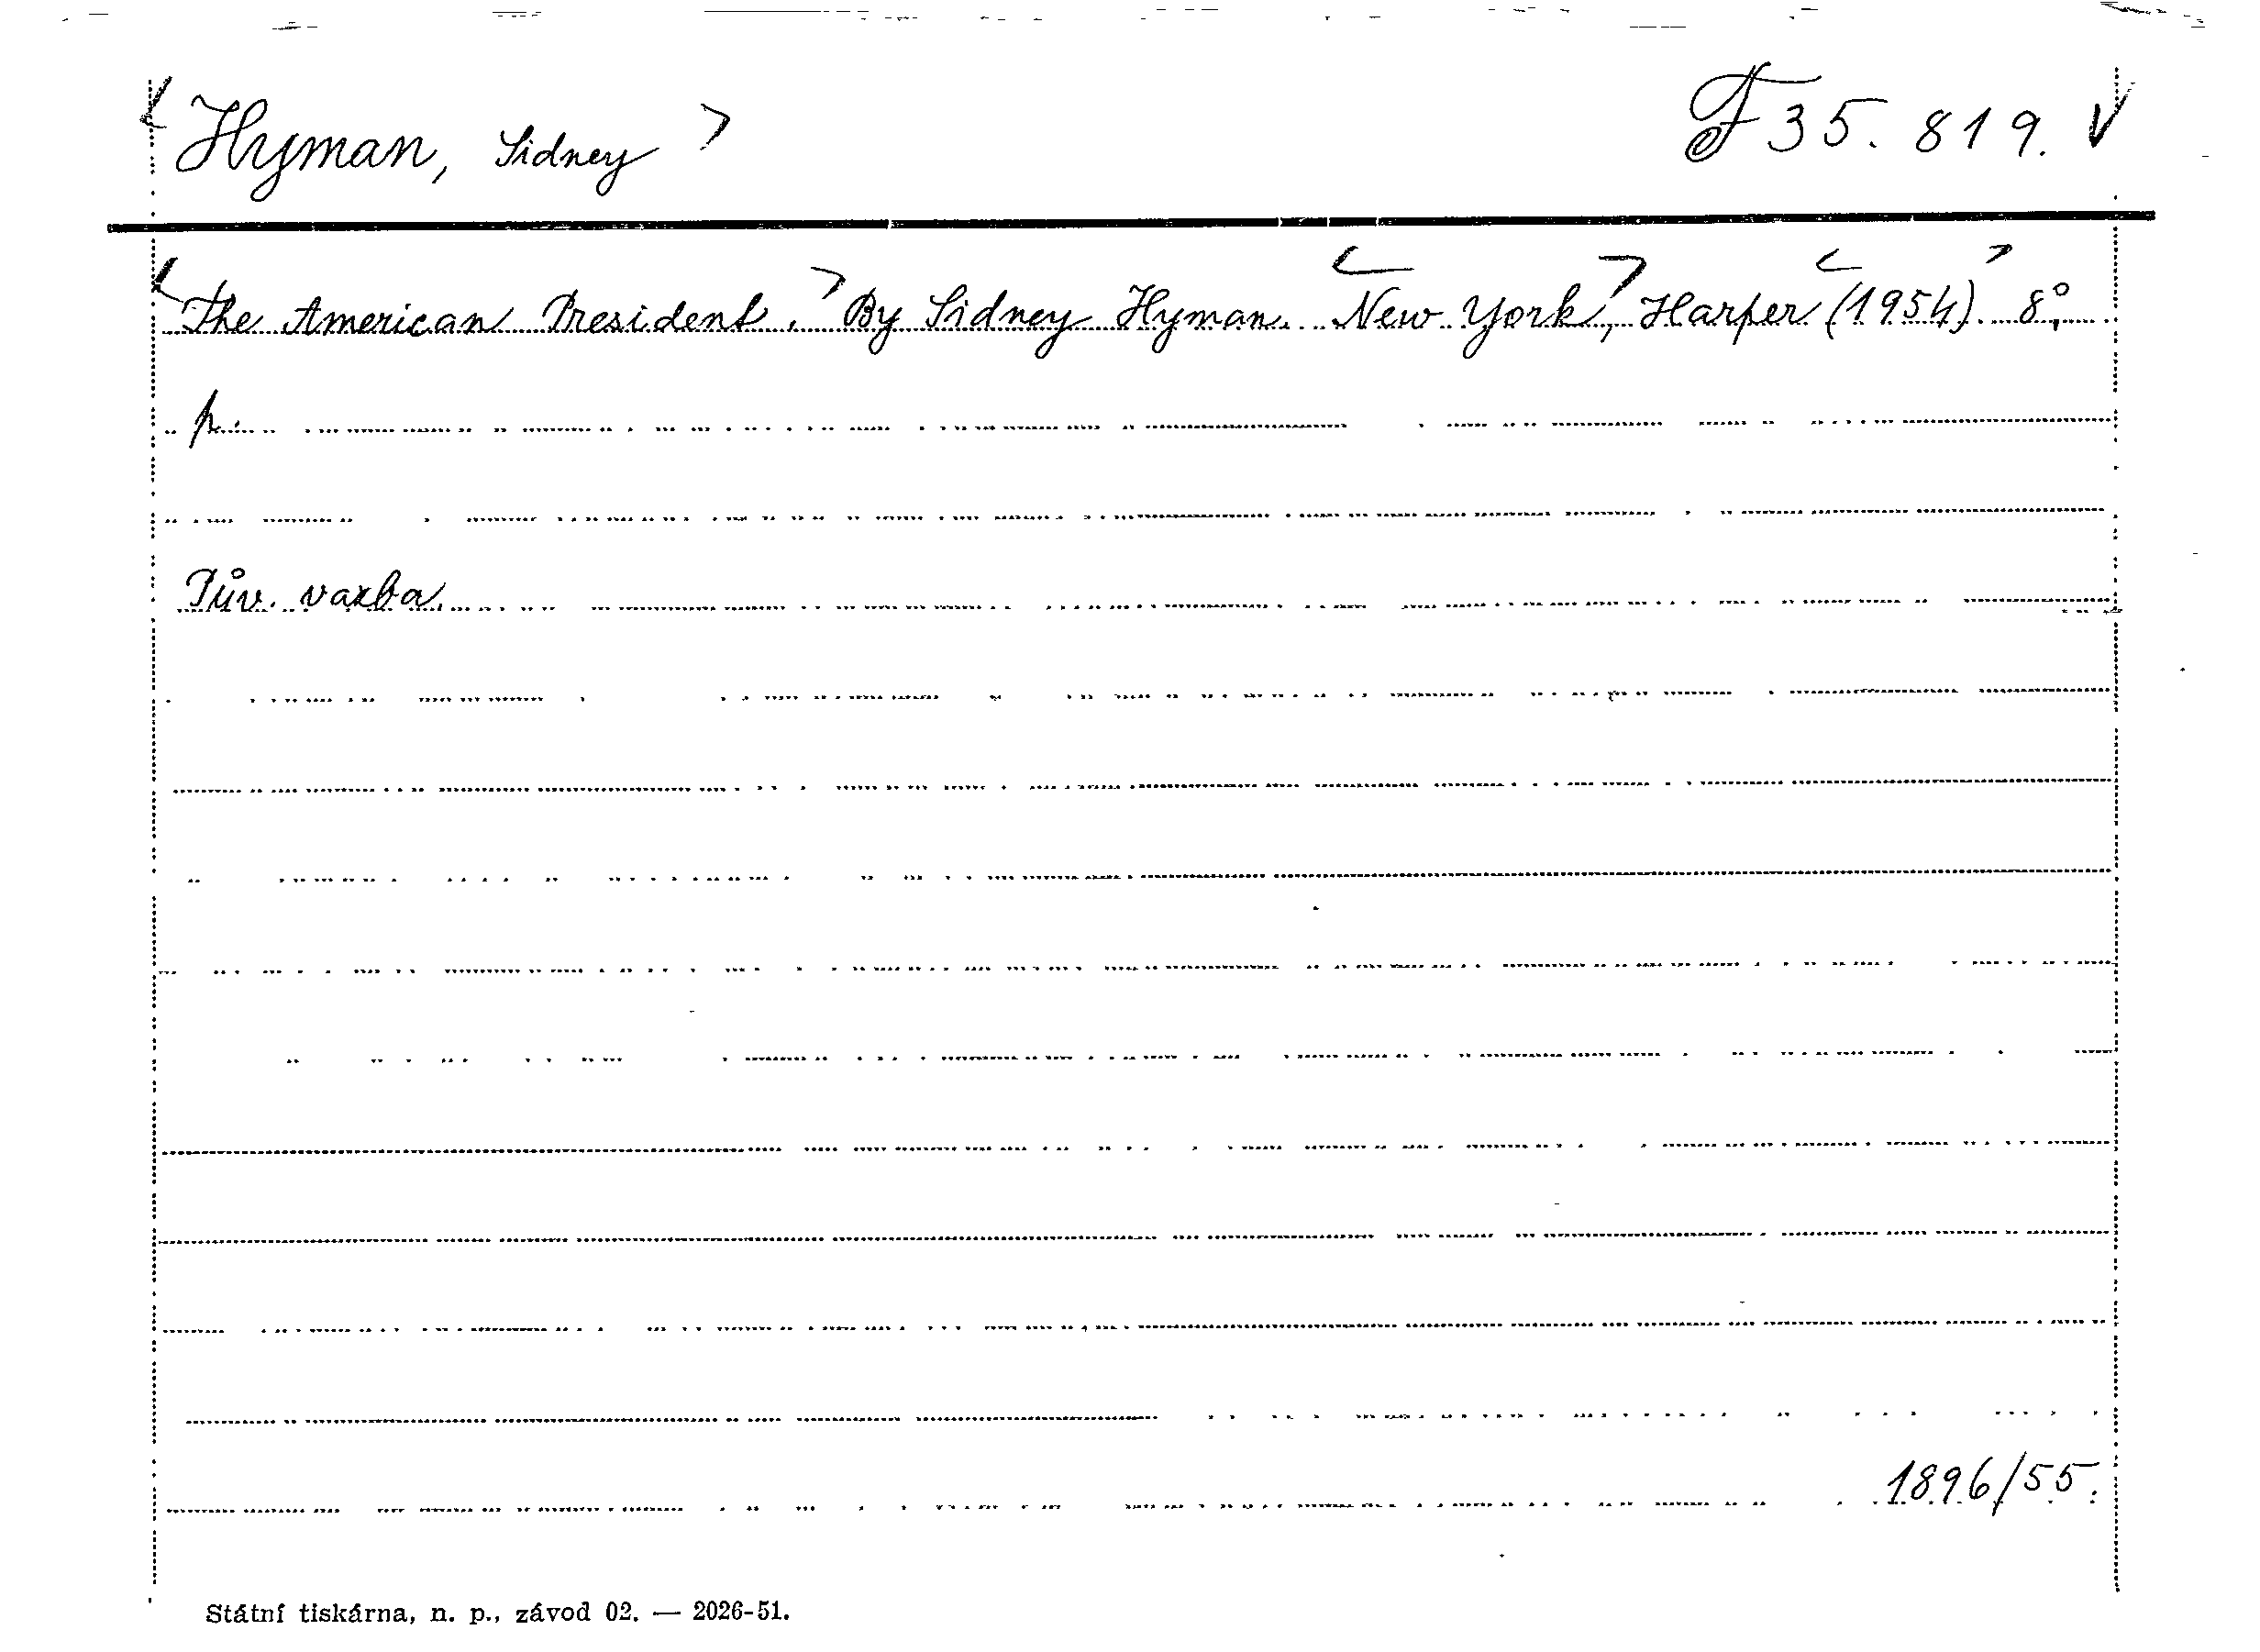 < Hyman, Sidney > F 35.819. V
<The American President.> By Sidney Hyman. <New York>, Harper <(1954)>. 8°,
p.
Pův. vazba.
1896/55.
Státní tiskárna, n. p., závod 02. — 2026-51.